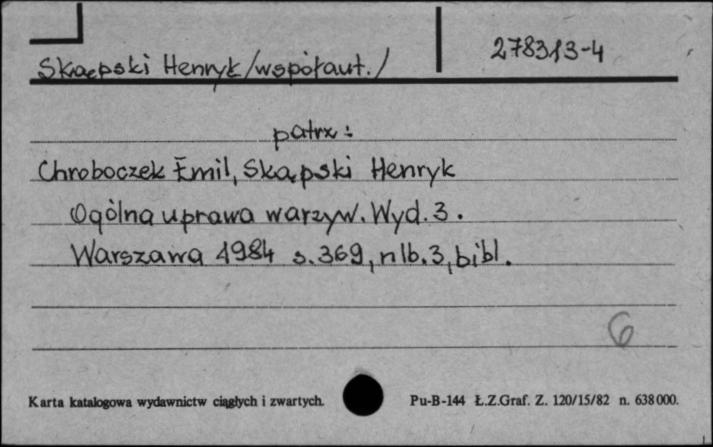 Skąpski Henryk /współaut./ 278313-4
patrz:
Chroboczek Emil, Skąpski Henryk
Ogólna uprawa warzyw. Wyd. 3.
Warszawa 1984 s. 369, nlb. 3, bibl.
6
Karta katalogowa wydawnictw ciągłych i zwartych. Pu-B-144 Ł.Z.Graf. Z. 120/15/82 n. 638 000.